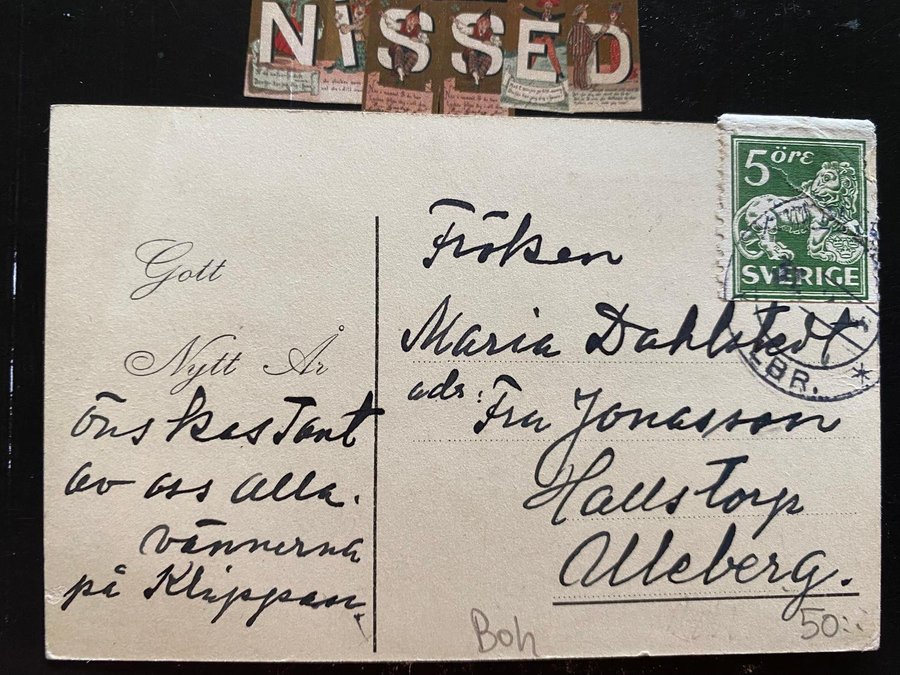 NISSED
5 öre
SVERIGE
LBR. *
Gott
Nytt År
önskas Tant
av oss alla.
vännerna
på Klippan.
Fröken
Maria Dahlstedt
adr: Fru Jonasson
Hallstorp
Uleberg.
Boh
50:-